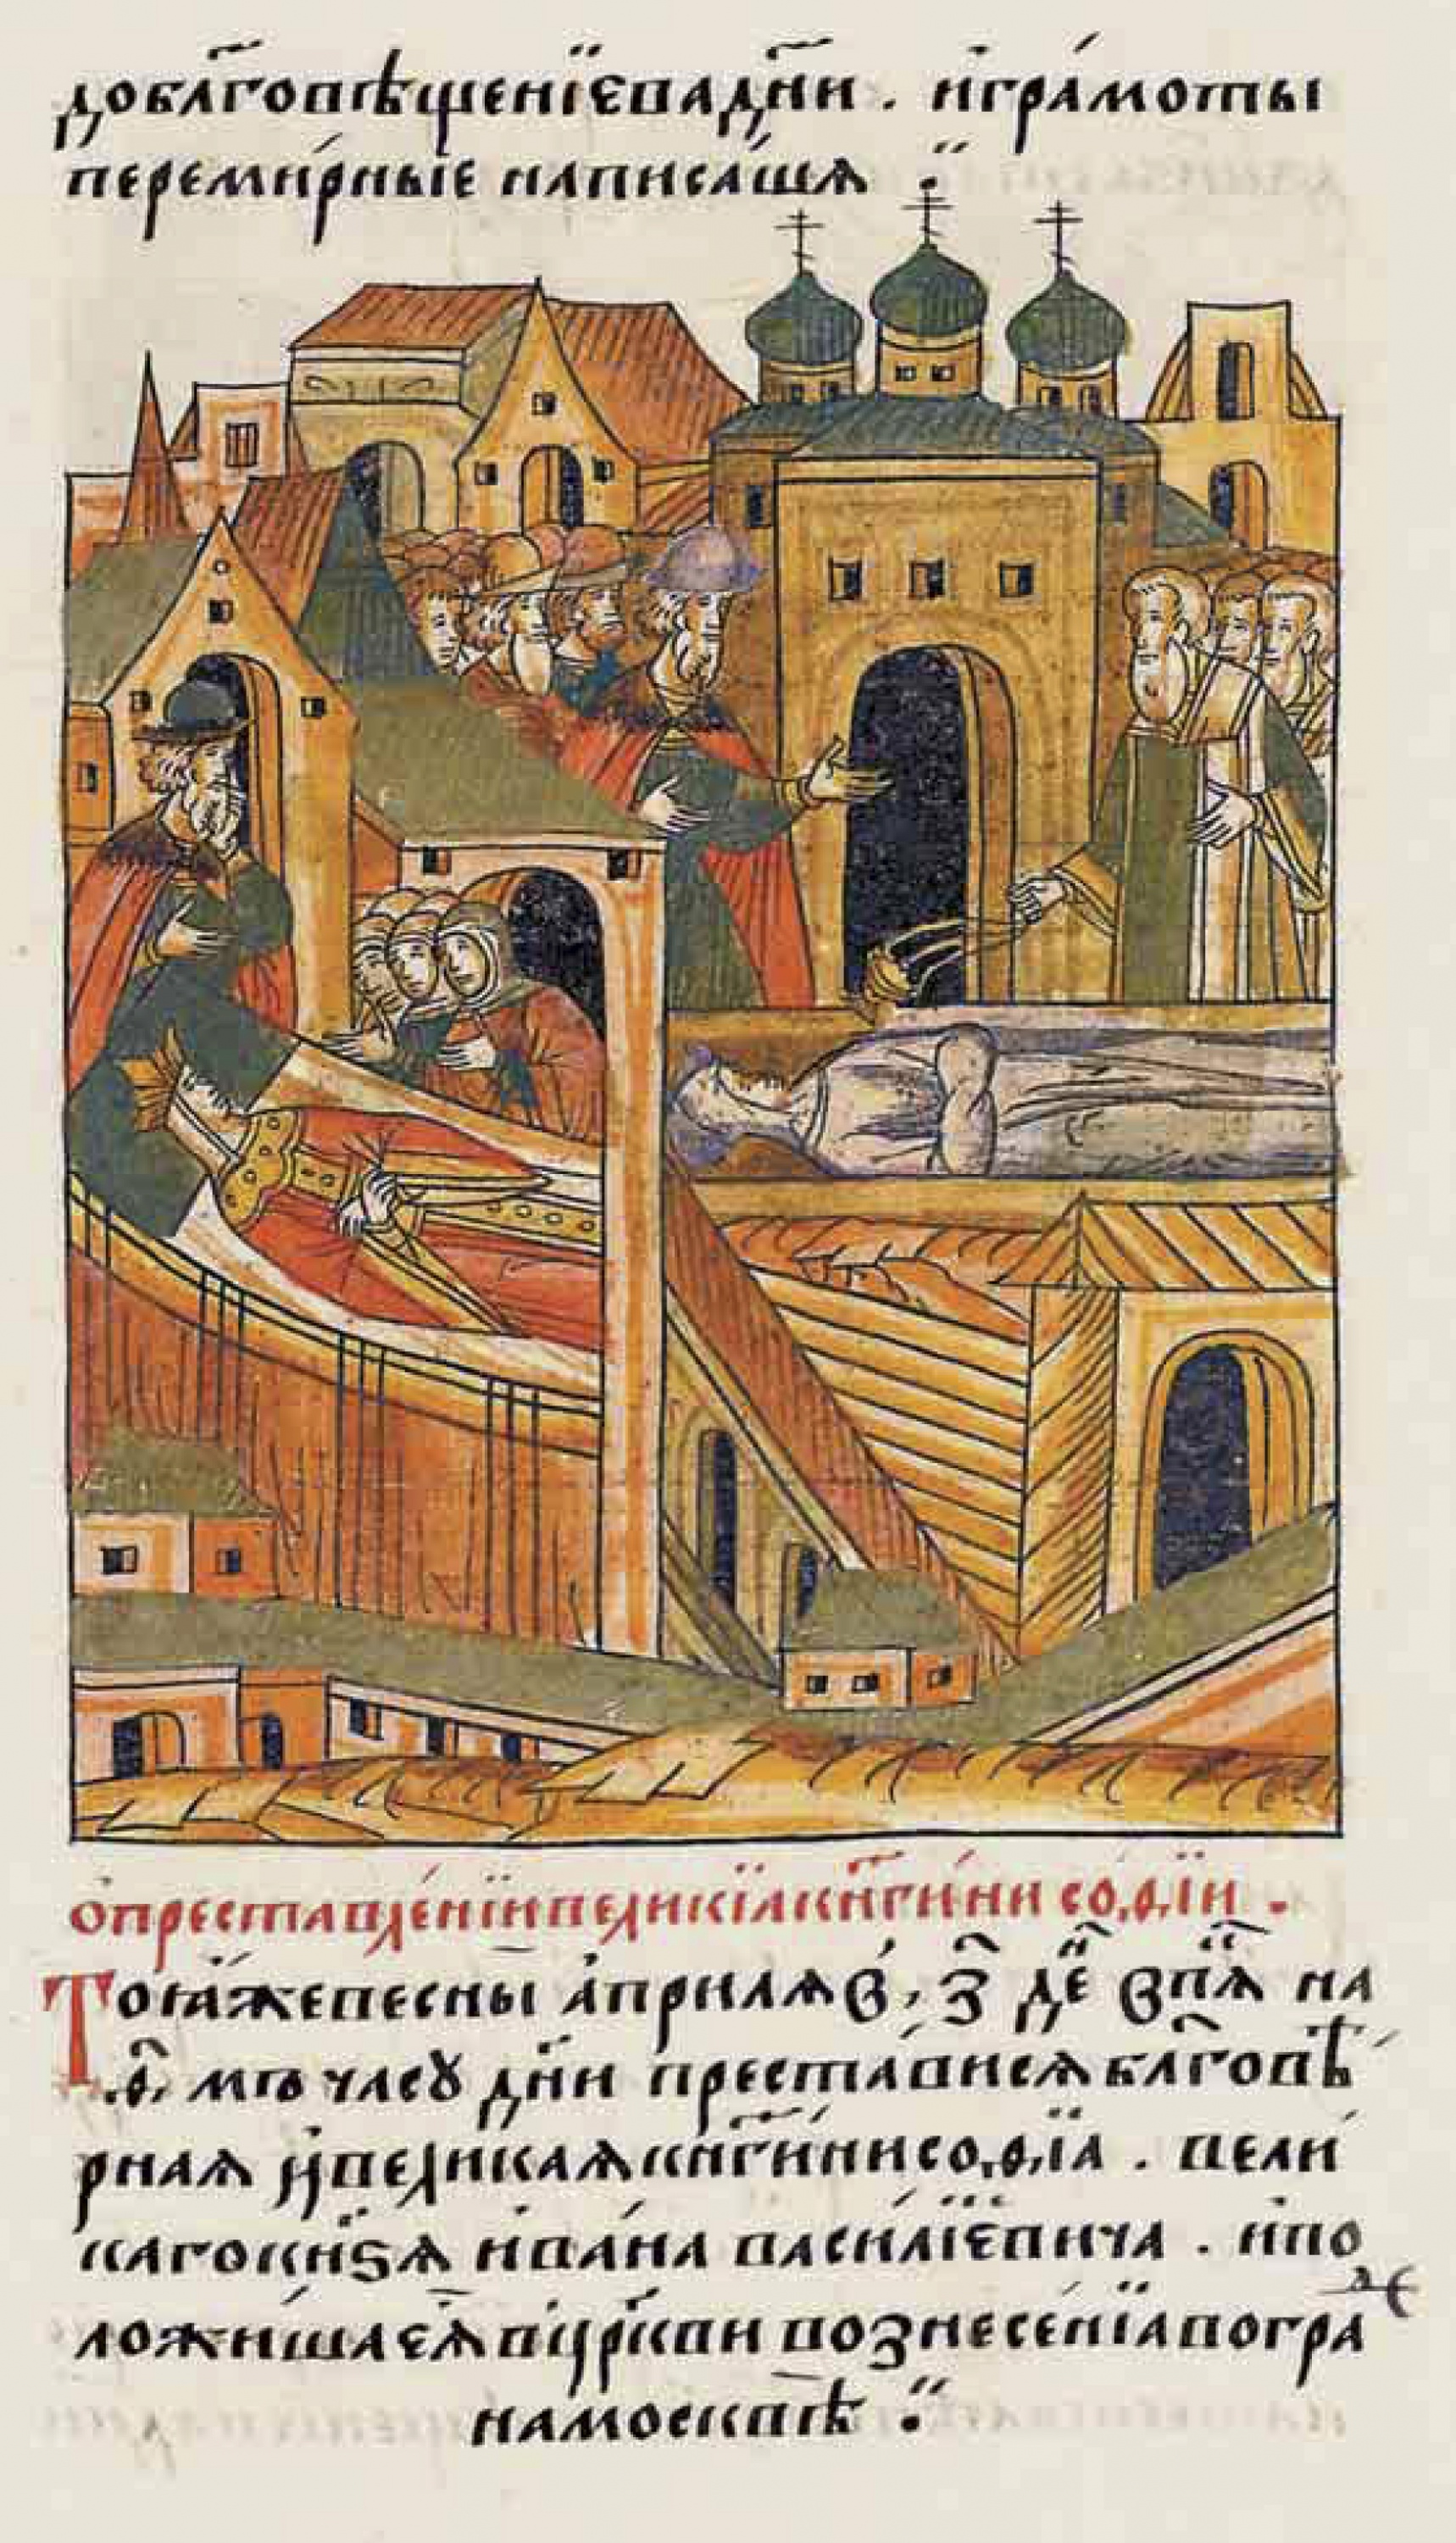 доблг҃овѣщенїѐвадн҃и . и҆гра́моты
переми́рныѐ написа́шѧ ⁘
ѻ҆преставле́нїивеликїѧ кнг҃и́ни соѳїи .
Тоя҆́жевесны̀ а҆прилѧ в҃, з҃ де҃ в пѧ҃ на
ѳ҃, мъ часꙋ̀ дн҃и преста́висѧ блг҃овѣ́
рнаѧ и҆великаѧ кнг҃и́ни соѳїа . вели́
кагокнѕ҃ѧ и҆ва́на васи́лїевича . и҆по
ложи́шаеѧ̀ вцр҃кви вознесе́нїа вогра
де
намосквѣ̀ ⁘